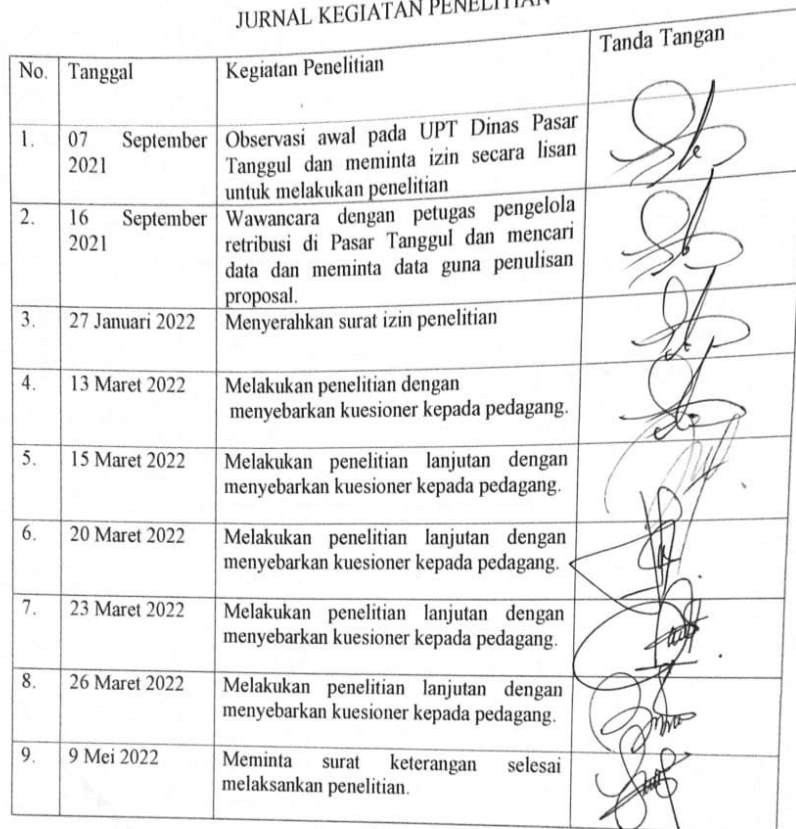 JURNAL KEGIATAN PENELITIAN
No. Tanggal Kegiatan Penelitian Tanda Tangan
1. 07 September Observasi awal pada UPT Dinas Pasar
2021 Tanggul dan meminta izin secara lisan
untuk melakukan penelitian
2. 16 September Wawancara dengan petugas pengelola
2021 retribusi di Pasar Tanggul dan mencari
data dan meminta data guna penulisan
proposal.
3. 27 Januari 2022 Menyerahkan surat izin penelitian
4. 13 Maret 2022 Melakukan penelitian dengan
menyebarkan kuesioner kepada pedagang.
5. 15 Maret 2022 Melakukan penelitian lanjutan dengan
menyebarkan kuesioner kepada pedagang.
6. 20 Maret 2022 Melakukan penelitian lanjutan dengan
menyebarkan kuesioner kepada pedagang.
7. 23 Maret 2022 Melakukan penelitian lanjutan dengan
menyebarkan kuesioner kepada pedagang.
8. 26 Maret 2022 Melakukan penelitian lanjutan dengan
menyebarkan kuesioner kepada pedagang.
9. 9 Mei 2022 Meminta surat keterangan selesai
melaksankan penelitian.